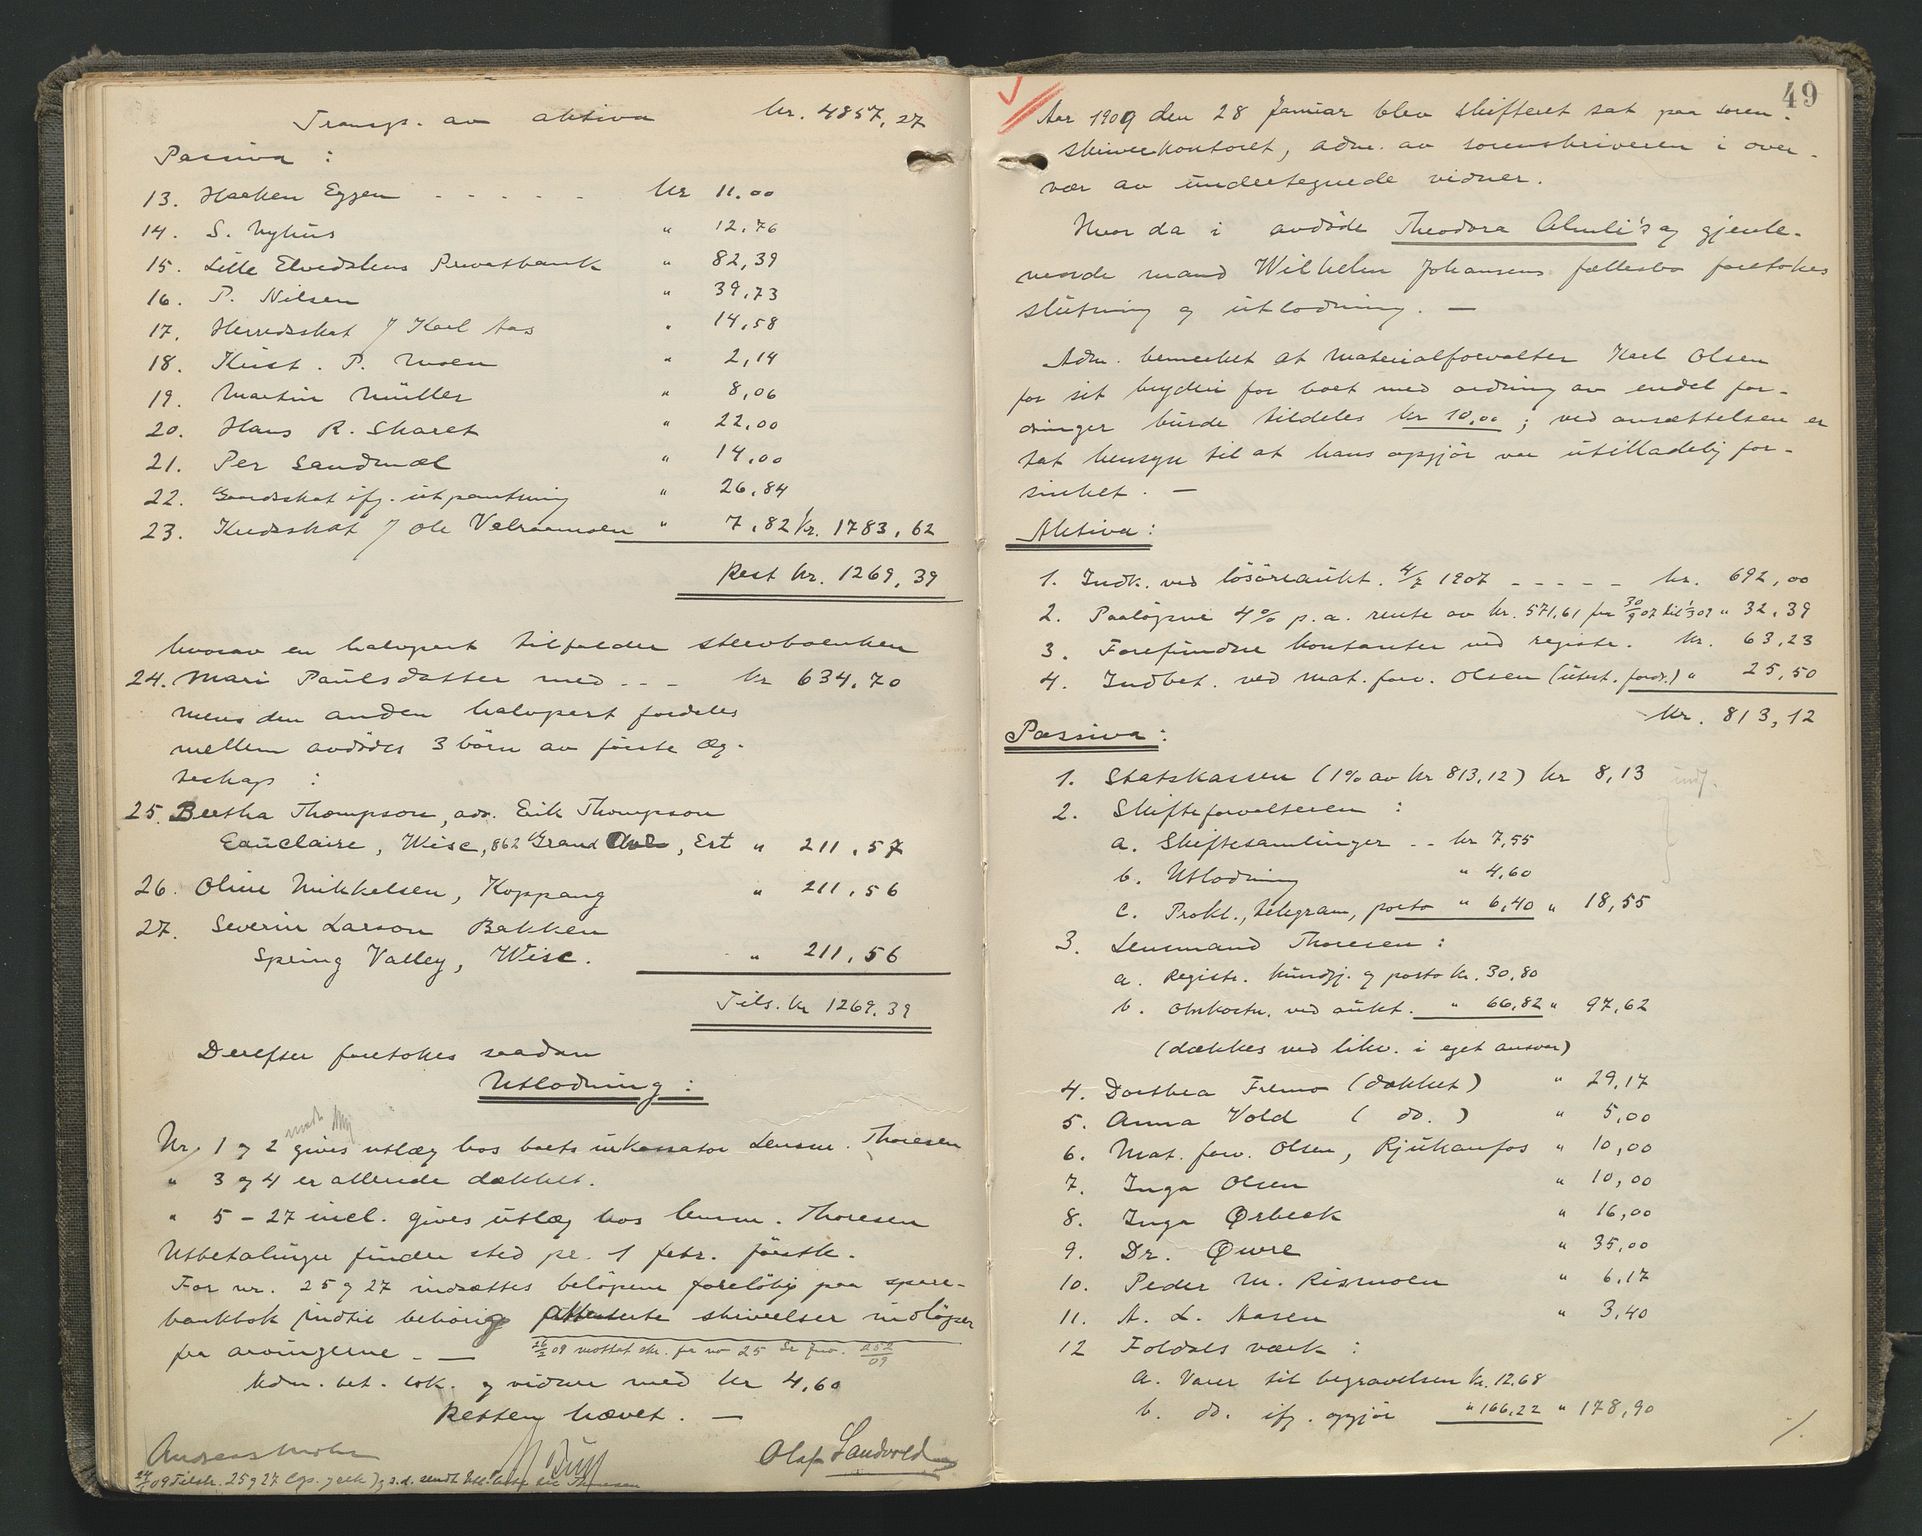 Transp. av aktiva kr. 4857,27
Passiva :
13. Haaken Eggen - - - - - kr 11.00
14. S. Nyhus " 12,76
15. Lille Elvedalens Privatbank " 82,39
16. P. Nilsen " 39,73
17. Herredsskat f Karl Aas " 14,58
18. Krist. P. Moen " 2,14
19. Martin Müller " 8,06
20. Hans R. Skaret " 22,00
21. Per Sandmæl " 14,00
22. Grundskat ifg. utpantning " 26,84
23. Kredsskat f Ole " 7,82 kr. 1783,62
Rest kr. 1269,39
hvorav en halvpart tilfalder stervboenken
24. Mari Paulsdatter med - - - kr 634,70
mens den anden halvpart fordeles
mellem avdødes 3 børn av første æg-
teskap :
25. Bertha Thompson, adr. Erik Thompson
Eauclaire, Wisc, 862 Grand Ave, Est " 211,57
26. Oline Mikkelsen, Koppang " 211,56
27. Severin Larson Bakken
Spring Valley, Wisc. " 211,56
Tils. kr 1269,39
Derefter foretokes saadan
Utlodning :
Nr. 1 g 2 gives utlæg hos boets inkassator Lensm. Thoresen
" 3 g 4 er allerede dækket.
" 5 - 27 incl. gives utlæg hos lensm. Thoresen
Utbetalinger finder sted pr. 1 febr. førstk.
For nr. 25 g 27 indsættes beløpene foreløbig paa spare-
bankbok indtil behørig attesterte skrivelser indløper
fra arvingerne. —
26/2 09 mottat skr. fra no 25 Se jour. 252/09
Adm. bet. tok. g vidner med kr 4,60
Retten hævet. —
Andreas Mohn Olaf Sandvold
09 Tilskr. 25 g 27
49
Aar 1909 den 28 Januar blev skifteret sat paa soren-
skriverkontoret, adm. av sorenskriveren i over-
vær av undertegnede vidner.
Hvor da i avdøde Theodora Almli's og gjenle-
vende mand Wilhelm Johansens fællesbo foretokes
slutning g utlodning. —
Adm. bemerket at materialforvalter Karl Olsen
for sit bryderi for boet med ordning av endel for-
dringer burde tildeles kr 10,00 ; ved ansættelsen er
tat hensyn til at hans opgjør var utilladelig for-
sinket. —
Aktiva :
1. Indk. ved løsøreaukt. 4/7 1907 - - - - - kr. 692,00
2. Paaløpne 4% p.a. rente av kr. 571,61 fra 30/9 07 til 1/3 09 " 32,39
3. Forefundne kontanter ved registr. kr. 63,23
4. Indbet. ved mat. forv. Olsen (utest. fordr.) " 25,50
kr. 813,12
Passiva :
1. Statskassen (1% av kr 813,12) kr 8,13
2. Skifteforvalteren :
a. Skiftesamlinger - - kr 7,55
b. Utlodning " 4,60
c. Prokl., telegram, porto " 6,40 " 18,55
3. Lensmand Thoresen :
a. Registr. kundgj. g porto kr. 30,80
b. Omkostn. ved aukt. " 66,82 " 97,62
(dækkes ved likv. i eget ansvar)
4. Dorthea Fremo (dækket) " 29,17
5. Anna Vold ( do. ) " 5,00
6. Mat. forv. Olsen, Rjukanfos " 10,00
7. Inga Olsen " 10,00
8. Inga Ørbeck " 16,00
9. Dr. Øwre " 35,00
10. Peder M. Rismoen " 6,17
11. A. L. Aasen " 3,40
12 Foldals værk :
a. Varer til begravelsen kr. 12,68
b. do. ifg. opgjør " 166,22 " 178,90
./.